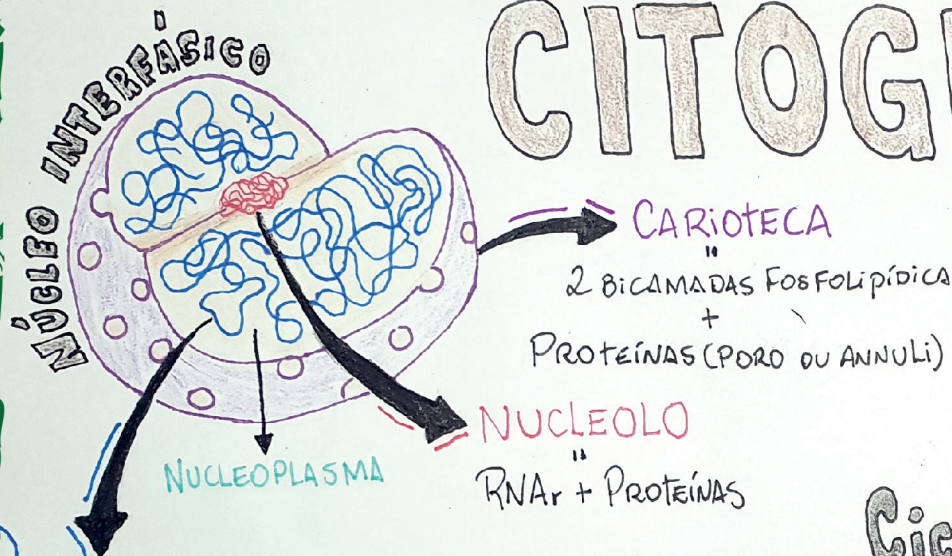 NÚCLEO INTERFÁSICO
CITOG
CARIOTECA
"
2 BICAMADAS FOSFOLIPÍDICA
+
PROTEÍNAS (PORO OU ANNULI)
NUCLEOLO
"
RNAr + PROTEÍNAS
NUCLEOPLASMA
Cic